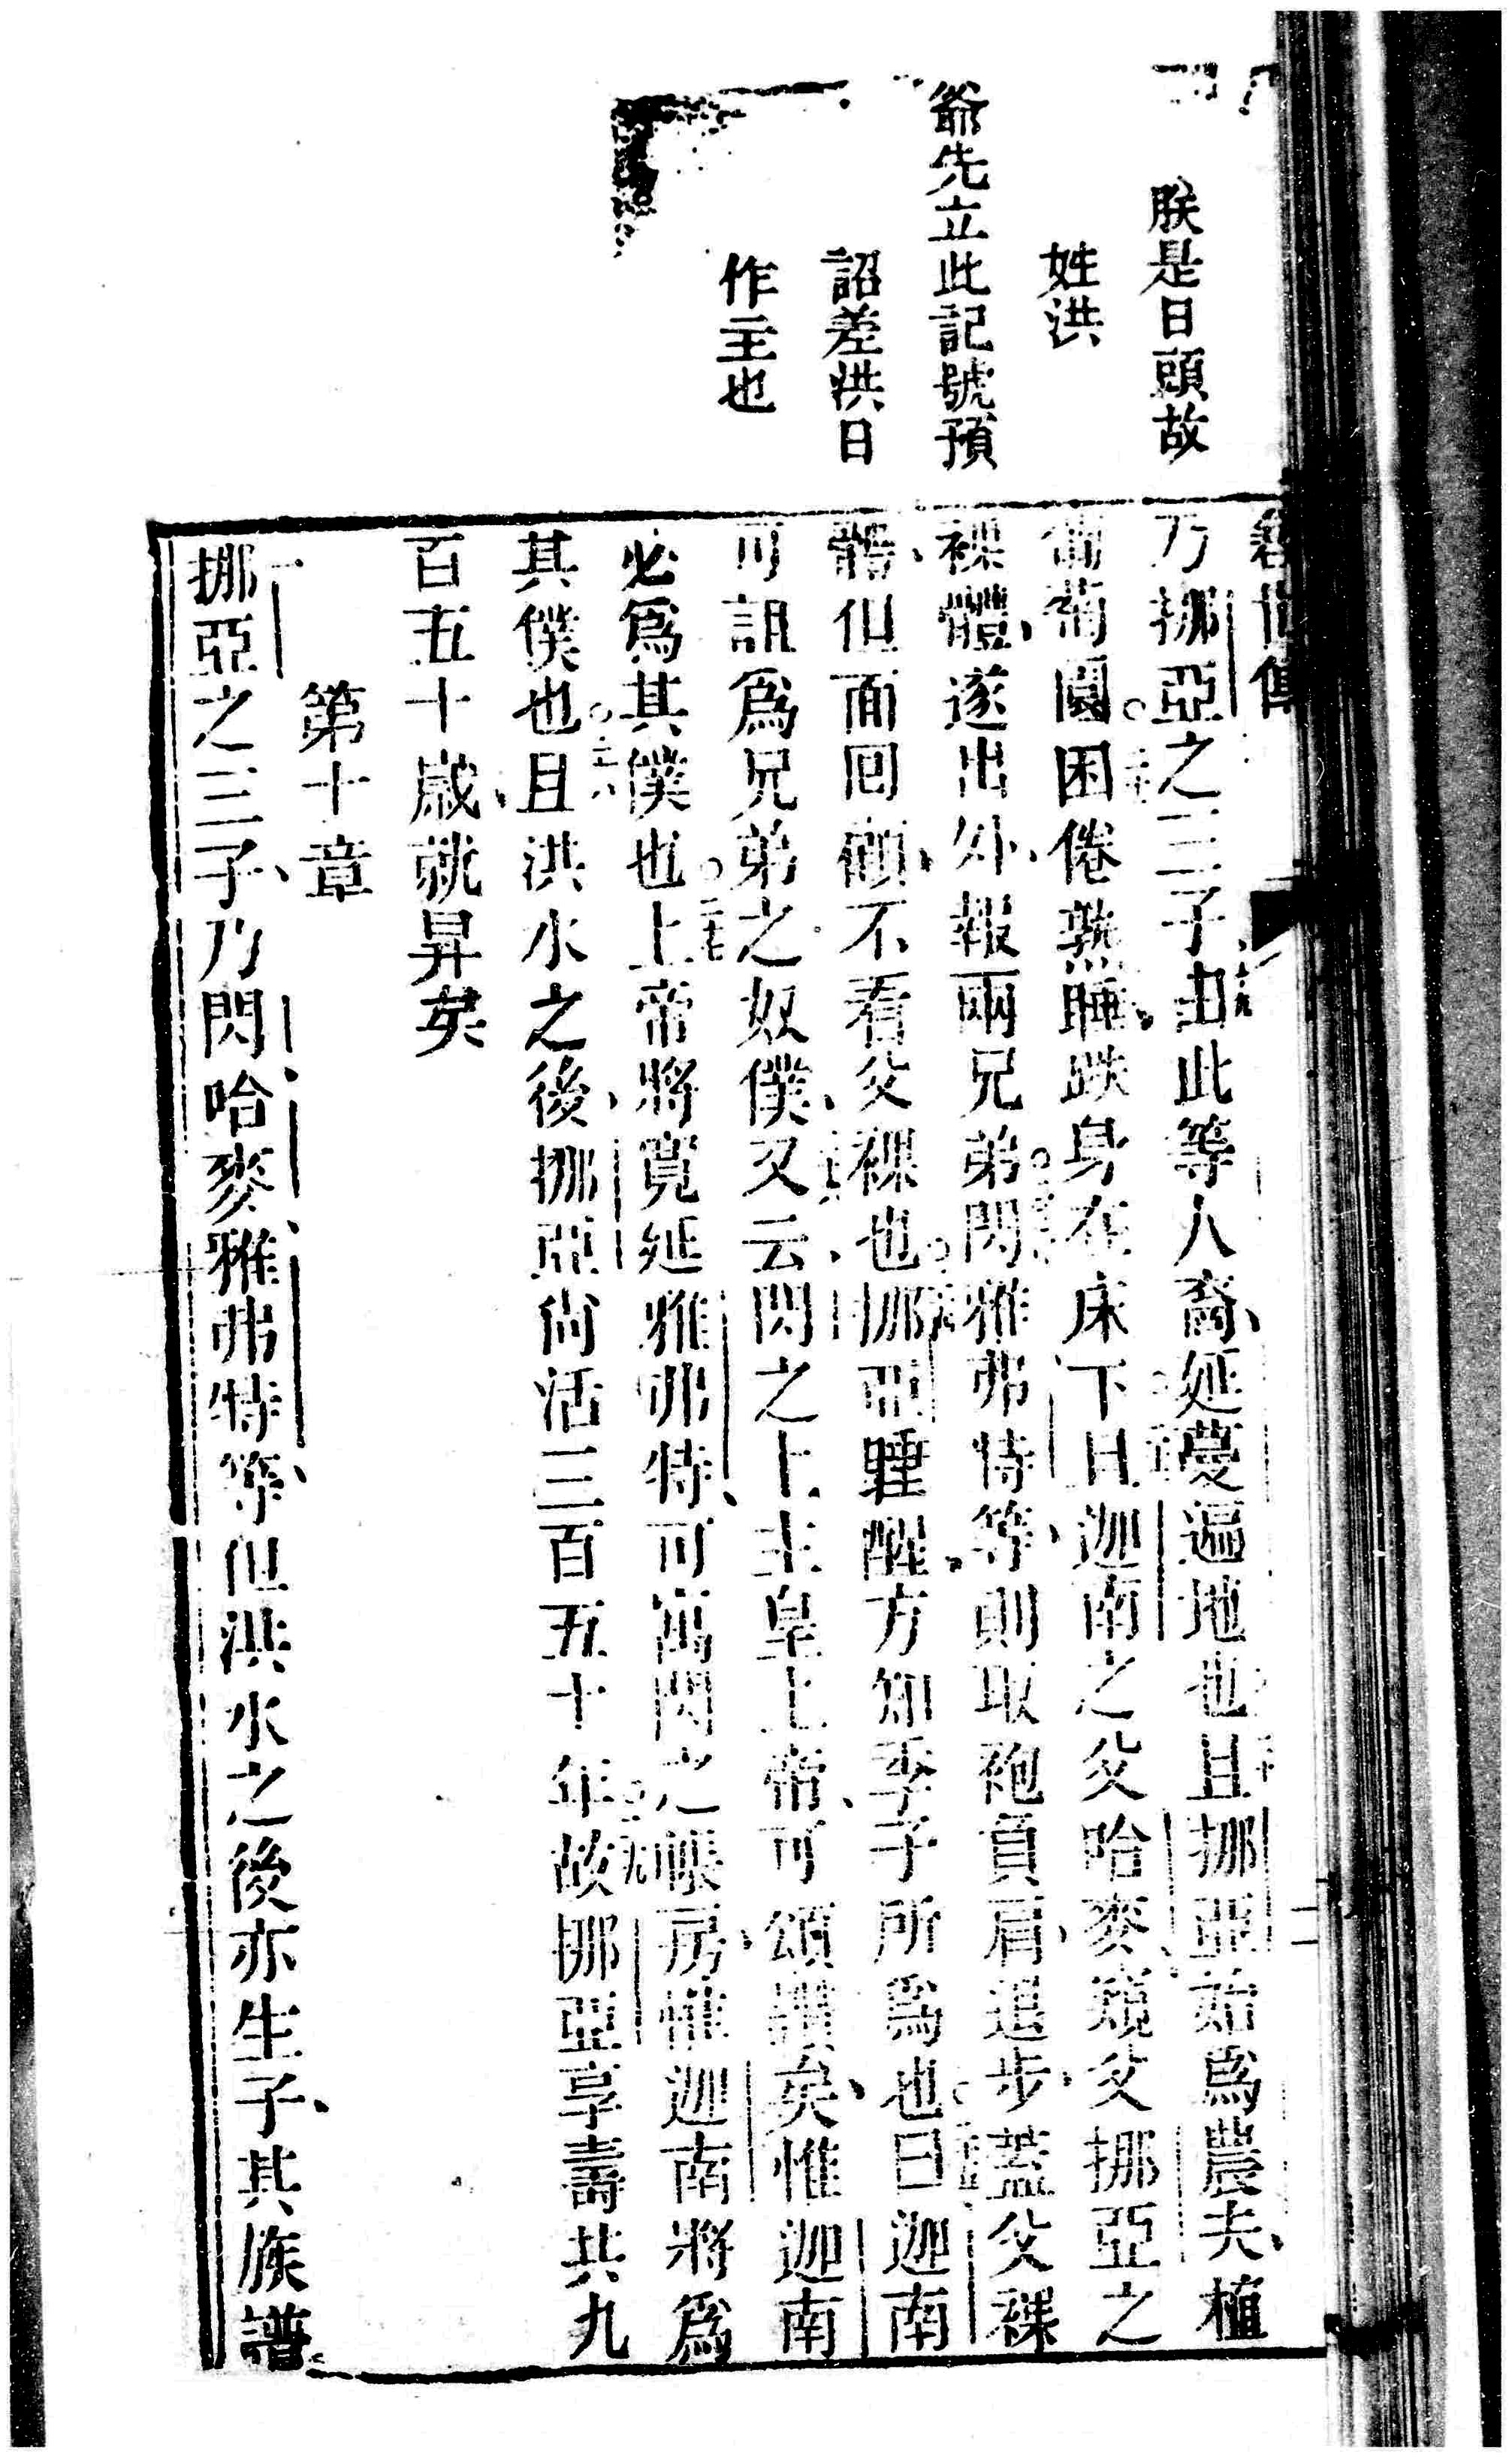 朕是日頭故
姓洪
爺先立此記號預
詔差洪日
作主也
乃挪亞之三子由此等人裔延蔓遍地也且挪亞始爲農夫植
葡萄園困倦熟睡跌身在床下且迦南之父哈麥窺父挪亞之
裸體遂出外報兩兄弟閃雅弗特等則取袍負肩退步蓋父裸
體但面回顧不看父裸也挪亞睡醒方知季子所爲也曰迦南
可詛爲兄弟之奴僕又云閃之上主皇上帝可頌讚矣惟迦南
必爲其僕也上帝將寬延雅弗特可寓閃之帳房惟迦南將爲
其僕也且洪水之後挪亞尙活三百五十年故挪亞享壽共九
百五十歲就昇矣
第十章
一
挪亞之三子乃閃哈麥雅弗特等但洪水之後亦生子其族譜